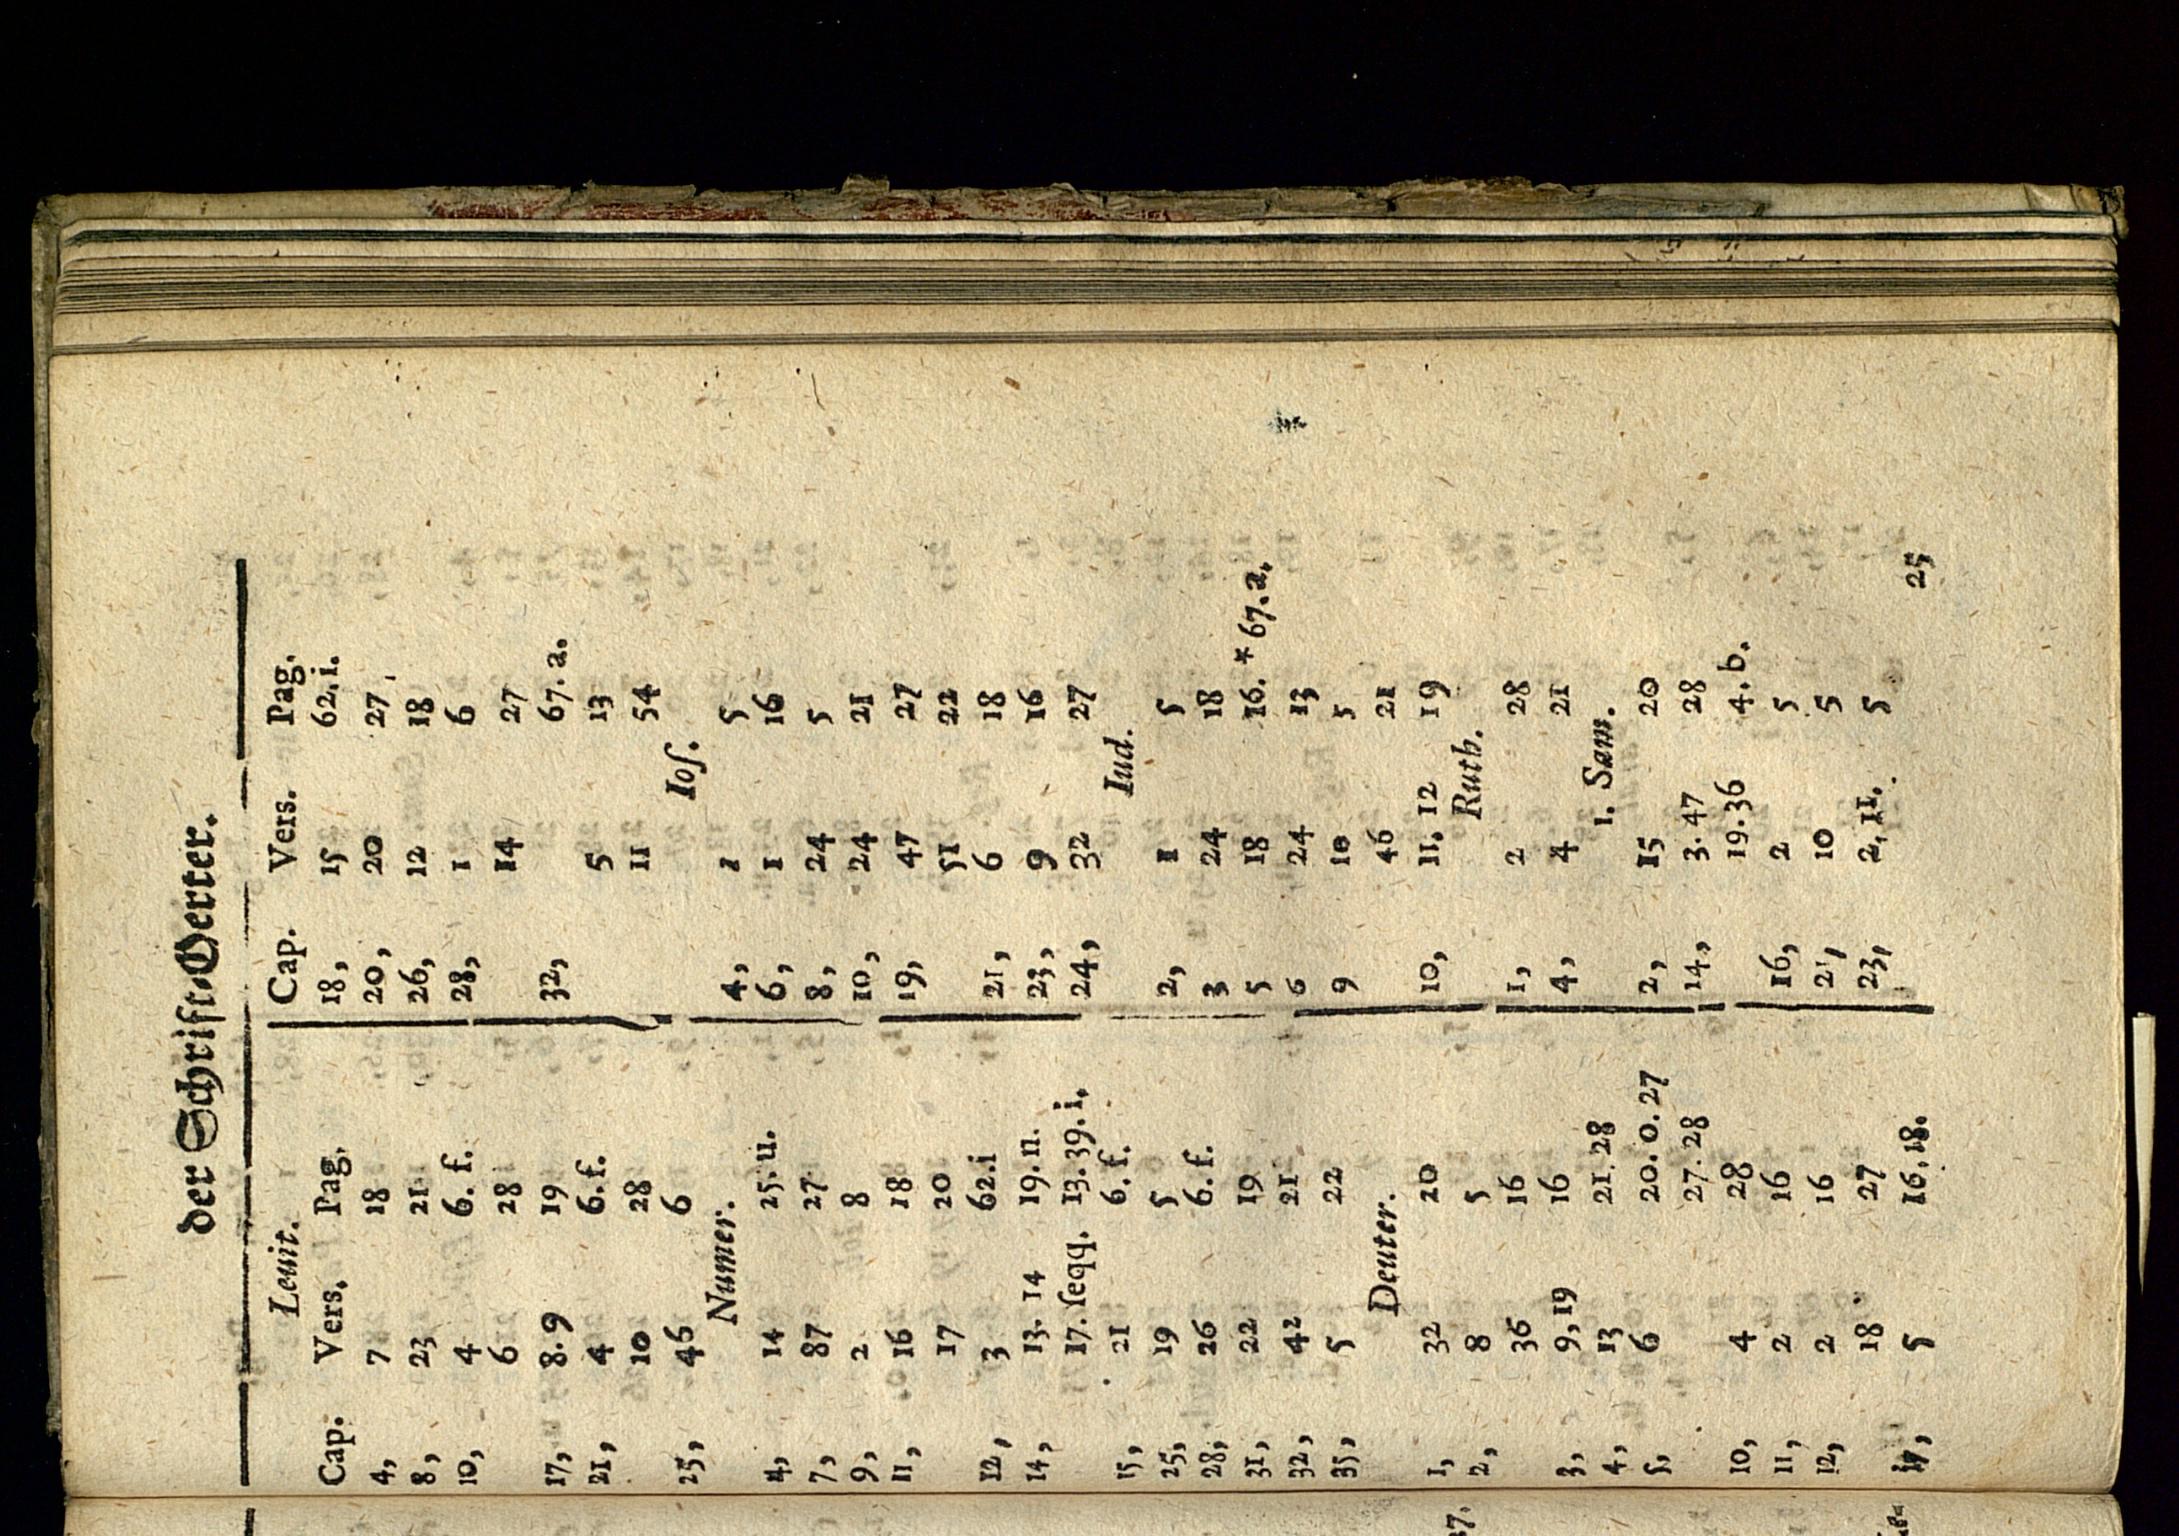 der Schrift-Oerter.
Leuit.
Cap. Vers. Pag.
4, 7 18
8, 23 21
10, 4 6. f.
6 28
17, 8. 9 19
21, 4 6. f.
10 28
25, 46 6
Numer.
4, 14 25. u.
7, 87 27
9, 2 8
11, 16 18
17 20
12, 3 62. i
14, 13. 14 19. n.
17. ſeqq. 13. 39. i,
15, 21 6. f.
25, 19 5
28, 26 6. f.
31, 22 19
32, 42 21
35, 5 22
Deuter.
1, 32 20
2, 8 5
36 16
3, 9, 19 16
4, 13 21. 28
5, 6 20. 0. 27
27. 28
10, 4 28
11, 2 16
12, 2 16
18 27
5 16, 18.
Cap. Vers. Pag.
18, 15 62, i.
20, 20 27
26, 12 18
28, 1 6
14 27
32, 67. a.
5 13
11 54
Ioſ.
4, 1 5
6, 1 16
8, 24 5
10, 24 21
19, 47 27
51 22
21, 6 18
23, 9 16
24, 32 27
Iud.
2, 1 5
3 24 18
5 18 16. * 67. a,
6 24 13
9 10 5
46 21
10, 11, 12 19
Ruth.
1, 2 28
4, 4 21
1. Sam.
2, 15 20
14, 3. 47 28
19. 36 4. b.
16, 2 5
21, 10 5
23, 2, 11. 5
25
37.